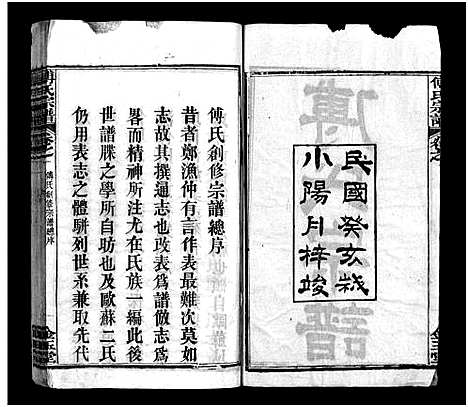 民國癸亥歲
小陽月梓竣
傅氏宗譜
傅氏創修宗譜總序
昔者鄭漁仲有言作表最難次莫如
志故其撰遏志也改表為譜倣志為
畧而精神所注尤在氏族一編此後
世譜牒之學所自昉也及歐蘇二氏
仍用表志之體駢列世系兼取先代
傅氏宗譜
傅氏創修宗譜總序